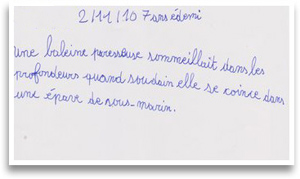 2/11/10 7 ans édemi
une baleine paresseuse sommeillait dans les
profondeurs quand soudain elle se coince dans
une épave de sous-marin.